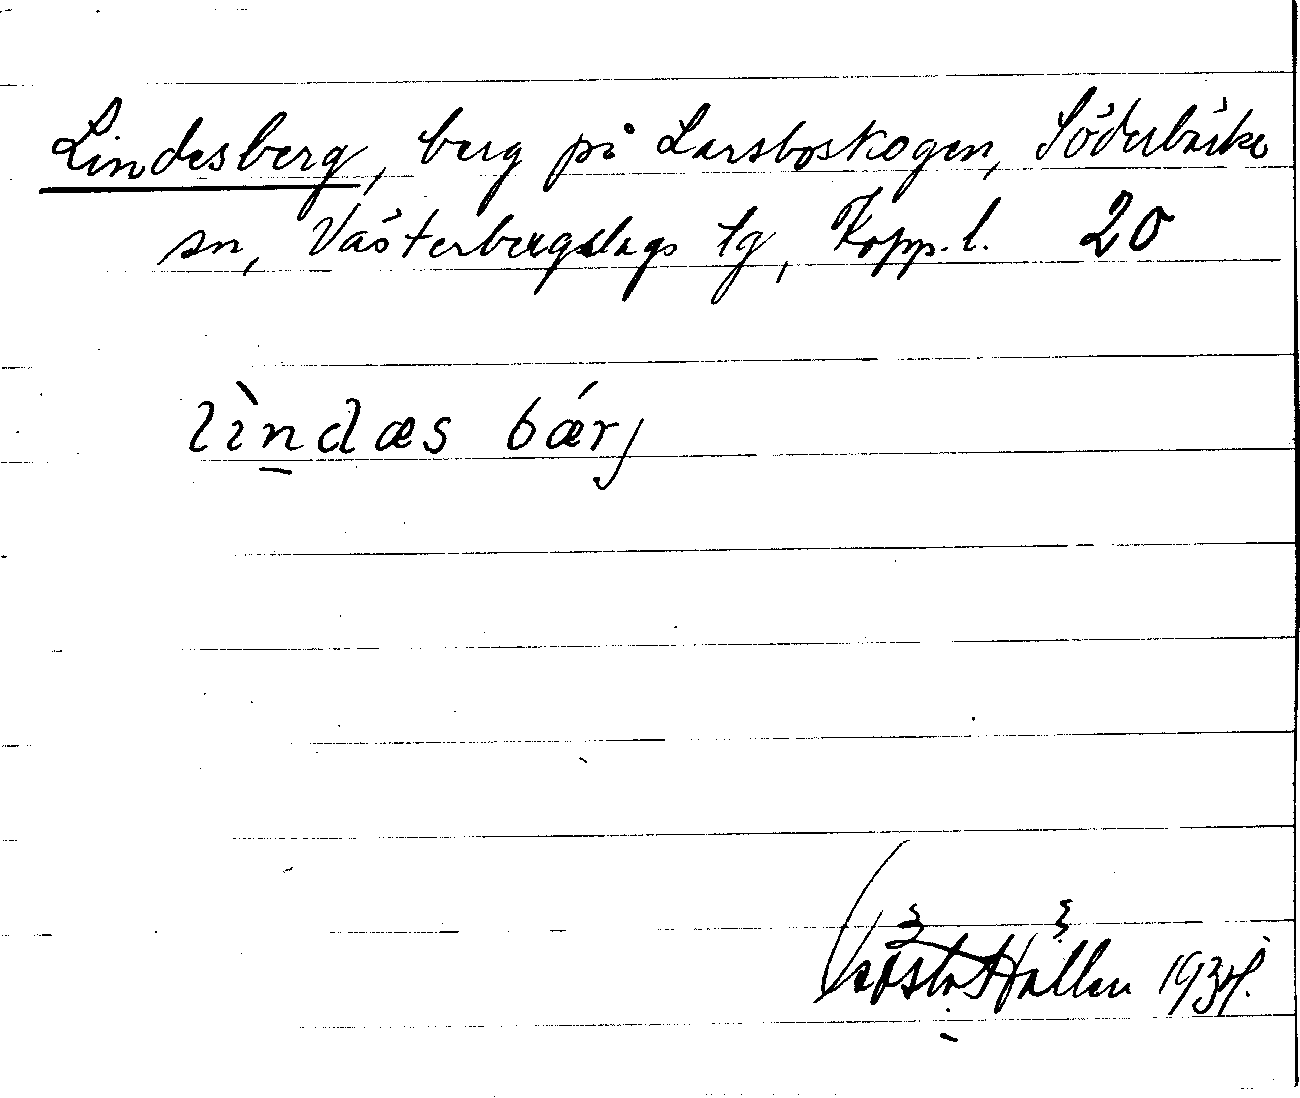 Lindesberg, berg på Larsboskogen, Söderbärke
sn, Västerbergslags tg, Kopp. l. 20
lìndæs bǽrj
Gösta Hallen 1934.